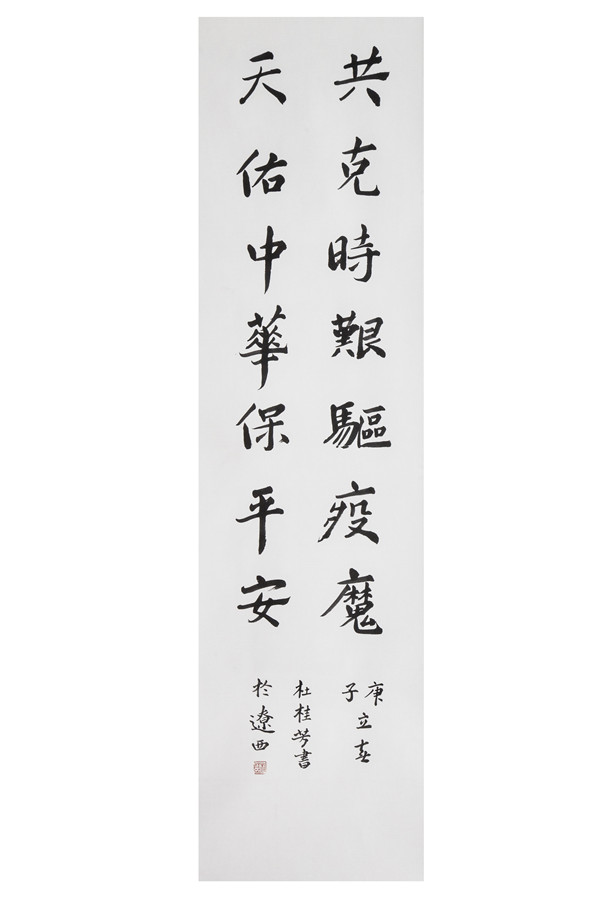 共克時艱驅疫魔
天佑中華保平安
庚子立春
杜桂芳書
於遼西